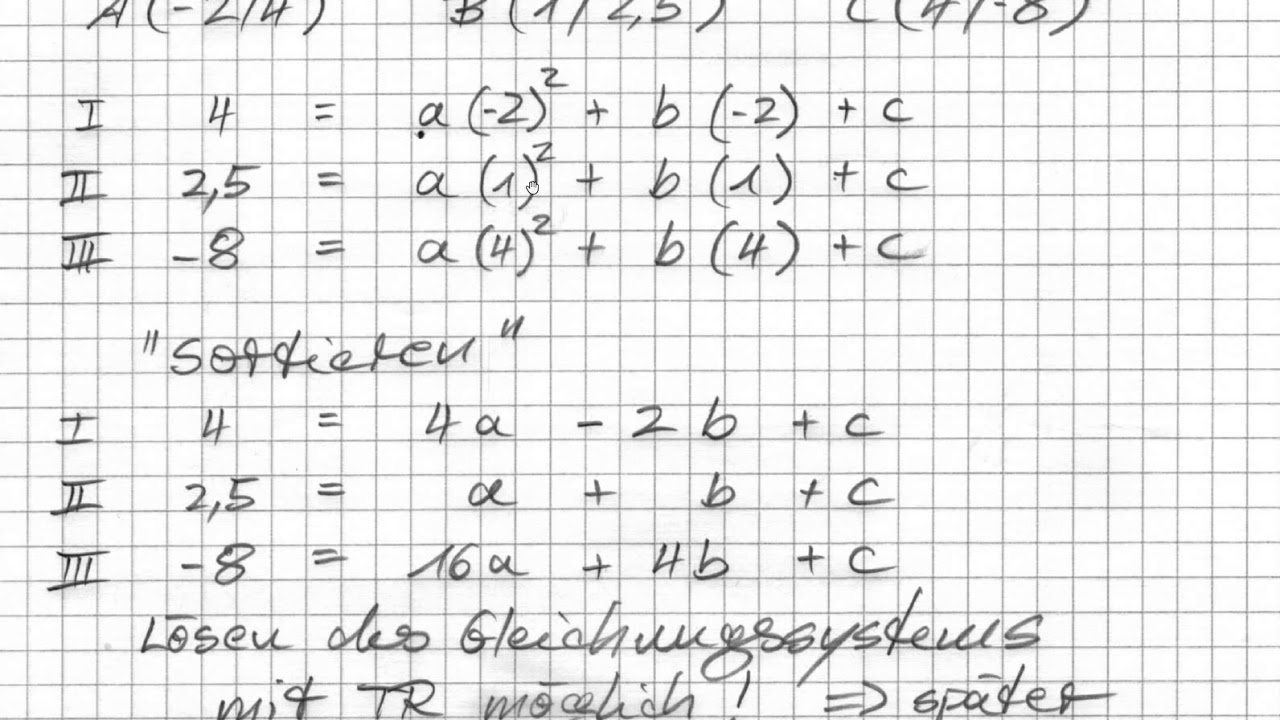 A(-2/4) B(1/2,5) C(4/-8)
I 4 = a(-2)² + b(-2) + c
II 2,5 = a(1)² + b(1) + c
III -8 = a(4)² + b(4) + c
"Sortieren"
I 4 = 4a - 2b + c
II 2,5 = a + b + c
III -8 = 16a + 4b + c
Lösen des Gleichungssystems
mit TR möglich! => später